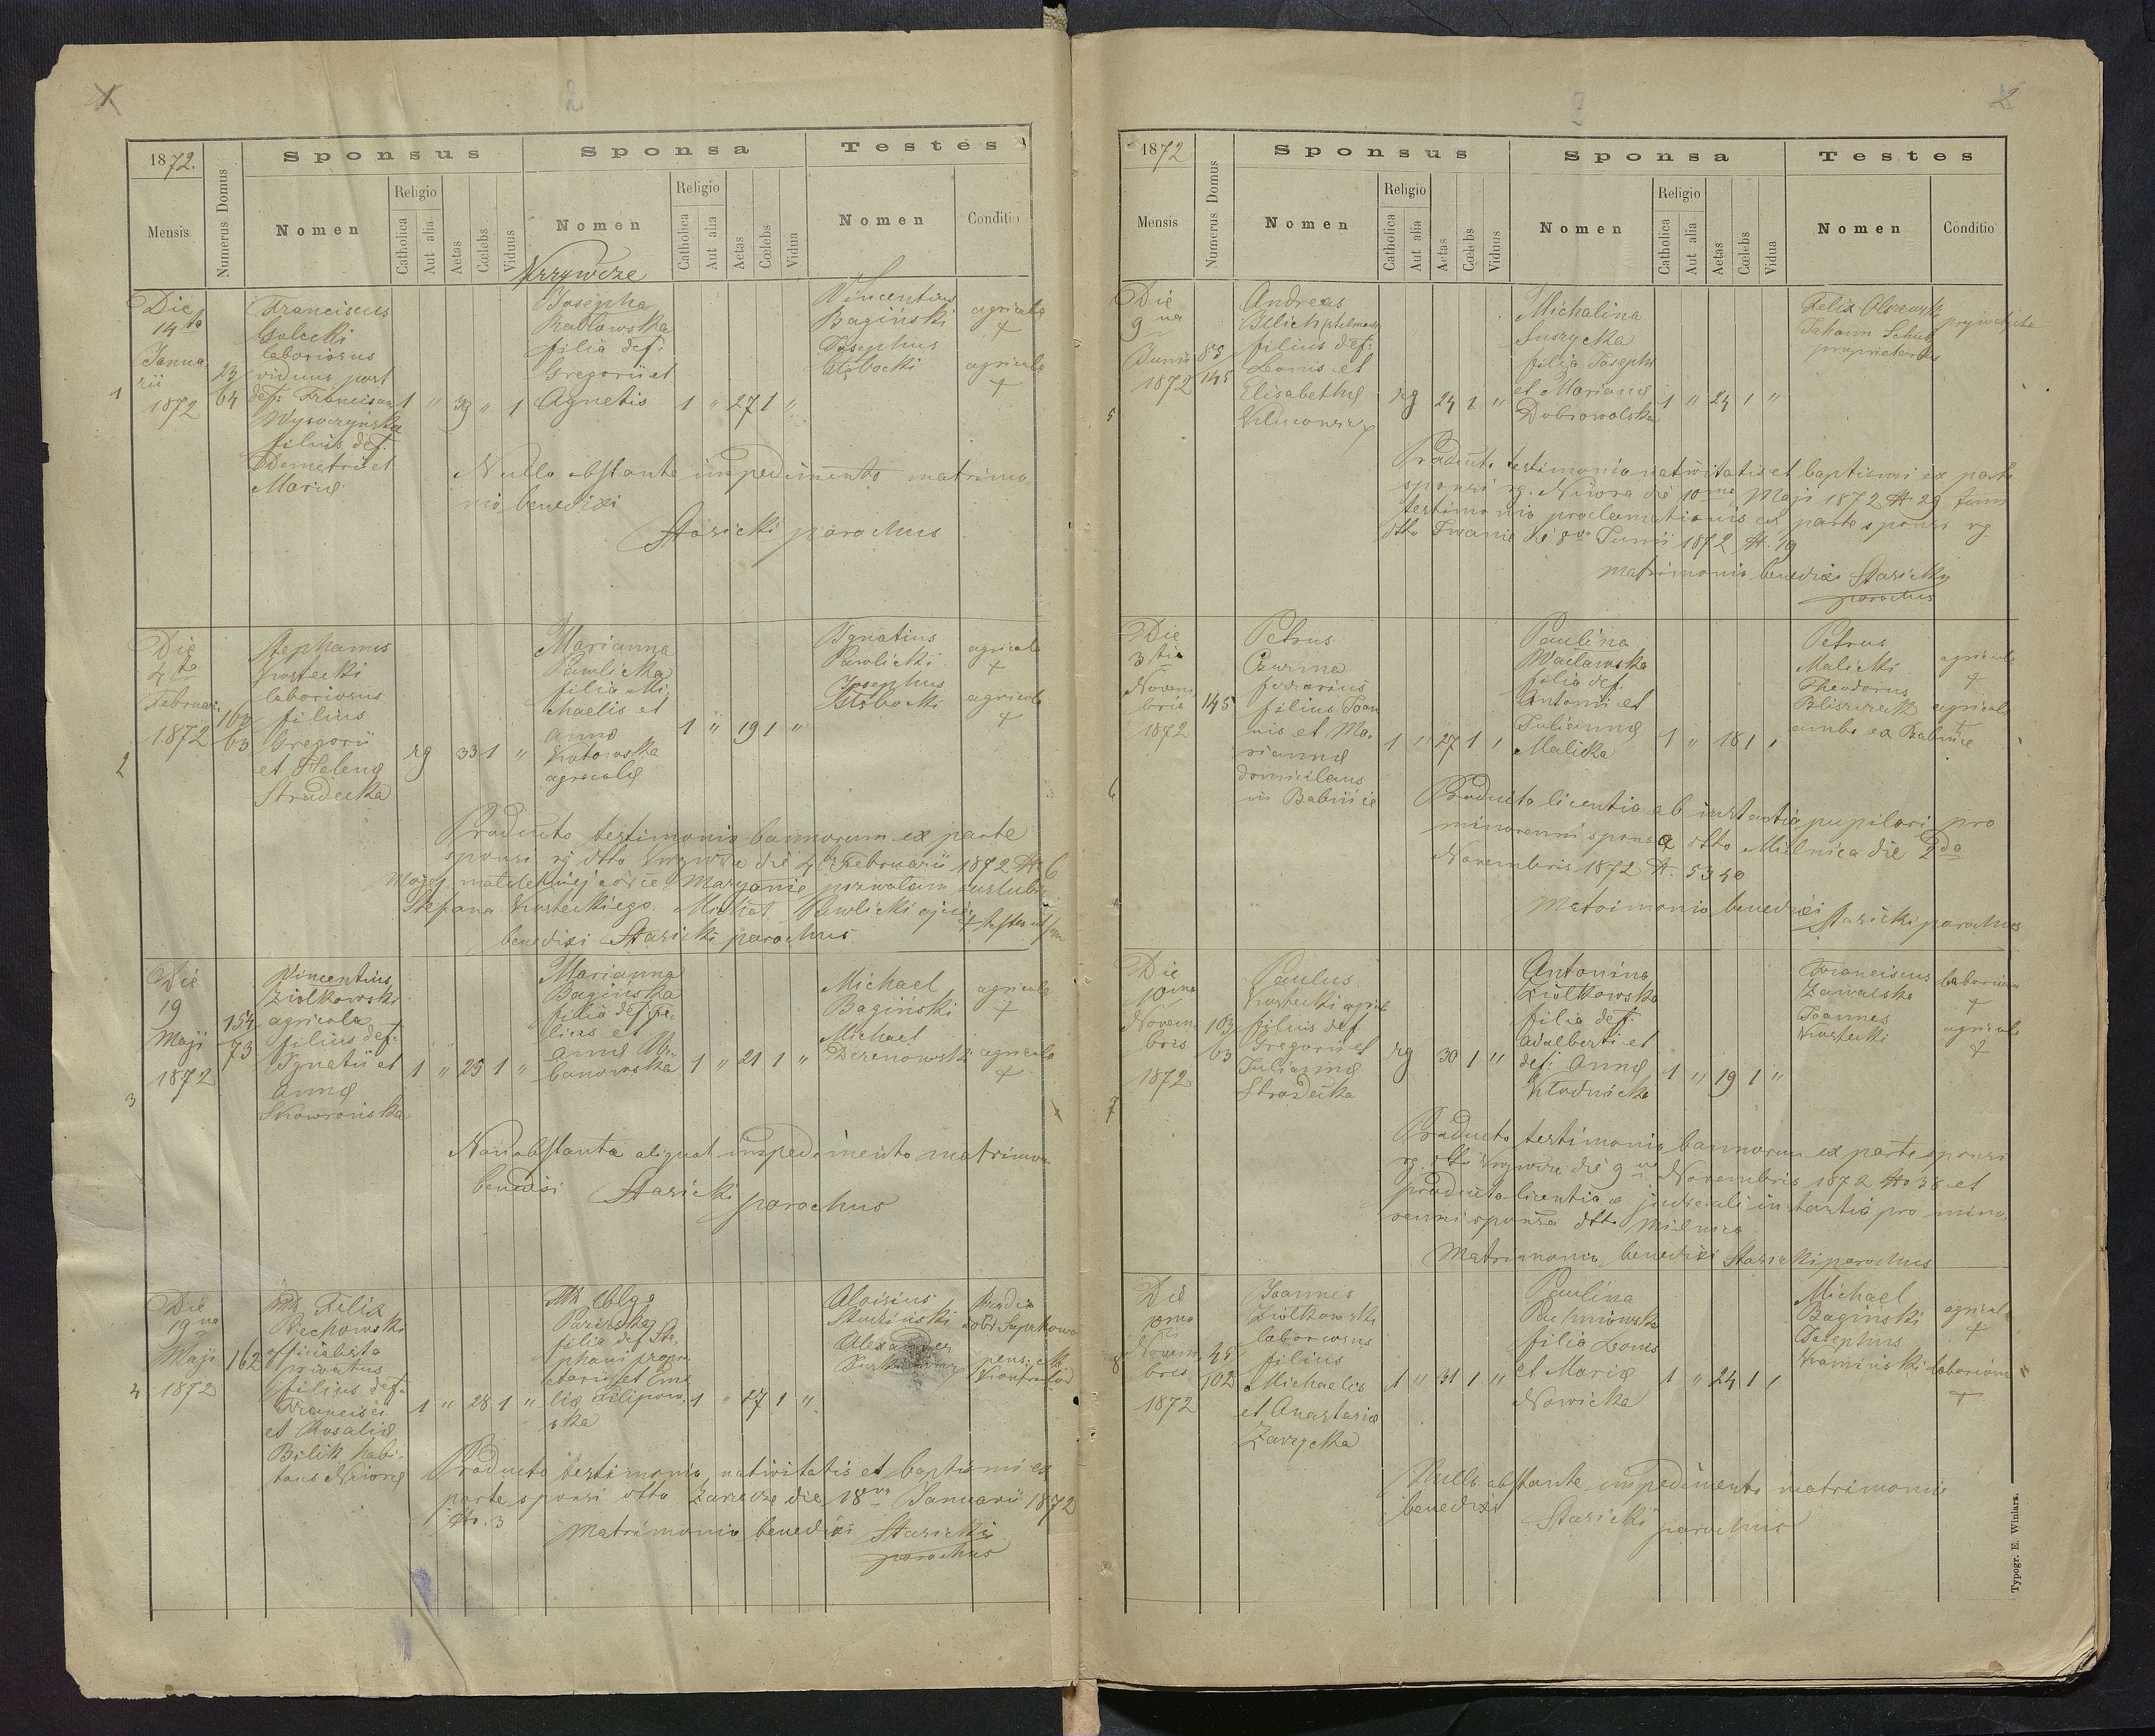 1
2
1872.
Mensis
Numerus Domus
Sponsus
Nomen
Religio
Catholica
Aut alia
Aetas
Cœlebs
Viduus
Sponsa
Nomen
Religio
Catholica
Aut alia
Aetas
Cœlebs
Vidua
Testes
Nomen
Conditio
Krzywcze
1
Die
14ta
Janua
rii
1872
23
64
Franciscus
Golecki
laboriosus
viduus post
def: Francisca
Wysoczyńska
filius def.
Demetrii et
Mariæ
1 " 39 " 1
Josepha
Radłowska
filia def:
Gregorii et
Agnetis
1 " 27 1 "
Vincentius
Bagiński
Josephus
Głębocki
agricola
+
agricola
+
Nullo obstante impedimento matrimo
nio benedixi
Stasicki parochus
2
Die
4ta
Februarii
1872
103
63
Stephanus
Kostecki
laboriosus
filius
Gregorii
et Helenæ
Stradecka
rg 33 1 "
Marianna
Pawlicka
filia Mi
chaelis et
Annæ
Kotowska
agricolæ
1 " 19 1 "
Ignatius
Pawlicki
Josephus
Głębocki
agricola
+
agricola
+
Producto testimonio bannorum ex parte
sponsi rg dtto Krzywcze die 4 Februarii 1872 N 6
Mojej małoletniej córce Maryanie pozwalam ślubu
Stefana Kosteckiego. Michał Pawlicki ojciec +
benedixi Stasicki parochus
3
Die
19
Maji
1872
154
73
Vincentius
Ziółkowski
agricola
filius def:
Ignatii et
Annæ
Skowrońska
1 " 25 1 "
Marianna
Bagińska
filia def. Fe
licis et
Annæ Ur
banowska
1 " 21 1 "
Michael
Bagiński
Michael
Dzenowski
agricola
+
agricola
+
Non obstante aliquot impedimento matrimon
benedixi Stasicki
parochus
4
Die
19na
Maji
1872
162
Felix
Piechowski
officialista
privatus
filius def.
Francisci
et Rosaliæ
Bilik habi
tans Niwræ
1 " 28 1 "
Olga
filia def Ste
phani propri
etarii et Emi
liæ Filipow
ska
1 " 27 1 "
Aloisius
Studziński
Alexander
Producto testimonio nativitatis et baptismi ex
parte sponsi dtto die 18 Januarii 1872
N. 3
Matrimonio benedixi Stasicki
parochus
2
1872
Mensis
Numerus Domus
Sponsus
Nomen
Religio
Catholica
Aut alia
Aetas
Cœlebs
Viduus
Sponsa
Nomen
Religio
Catholica
Aut alia
Aetas
Cœlebs
Vidua
Testes
Nomen
Conditio
5
Die
9na
Junii
1872
85
145
Andreas
Bilich
filius def:
Leonis et
Elisabethæ
rg 24 1 "
Michalina
Suszycka
filia Josephi
et Mariannæ
Dobrowolska
1 " 24 1 "
Felix Olszewski
Johann Schulz
proprietarius
Producto testimonio nativitatis et baptismi ex parte
sponsi rg. Niwra die 10ma Maji 1872 N 29 tum
testimonio proclamationis ex parte sponsi rg
dtto Iwanie die 8va Junii 1872 N. 19
Matrimonio benedixi Stasicki
parochus
6
Die
3tia
Novem
bris
1872
145
Petrus
Czarma
filius Joan
nis et Ma
riannæ
domicilans
in Babińce
1 " 27 1 "
Paulina
Wacławska
filia def.
Antonii et
Juliannæ
Malicka
1 " 18 1 "
Petrus
Malicki
Theodorus
ambo ex Babińce
agricola
+
agricola
+
Producto licentia ab instantia pupilari pro
minorenni sponsa dtto Mielnica die 2da
Novembris 1872 N. 5340
Matrimonio benedixi
Stasicki parochus
7
Die
10ma
Novem
bris
1872
103
63
Paulus
Kostecki agricol
filius def
Gregorii et
Juliannæ
Stradecka
rg 30 1 "
Antonina
Ziółkowska
filia def.
Adalberti et
def: Annæ
Kłodnicka
1 " 19 1 "
Franciscus
Zawalska
Joannes
Kostecki
laboriosus
+
agricola
+
Producto testimonio bannorum ex parte sponsi
rg. dtto Krzywcze die 9na Novembris 1872 No 38 et
producta licentia a judiciali instantia pro mino
renni sponsa dtto Mielnica
Matrimonio benedixi Stasicki parochus
8
Die
10ma
Novem
bris
1872
45
102
Joannes
Ziółkowski
laboriosus
filius
Michaelis
et Anastasiæ
Zarzycka
1 " 31 1 "
Paulina
Pachniowska
filia Leonis
et Mariæ
Nowicka
1 " 24 1 "
Michael
Bagiński
Josephus
Kamiński
agricola
+
laboriosus
+
Nullo obstante impedimento matrimonio
benedixi
Stasicki parochus
Typogr. E. Winiarz.